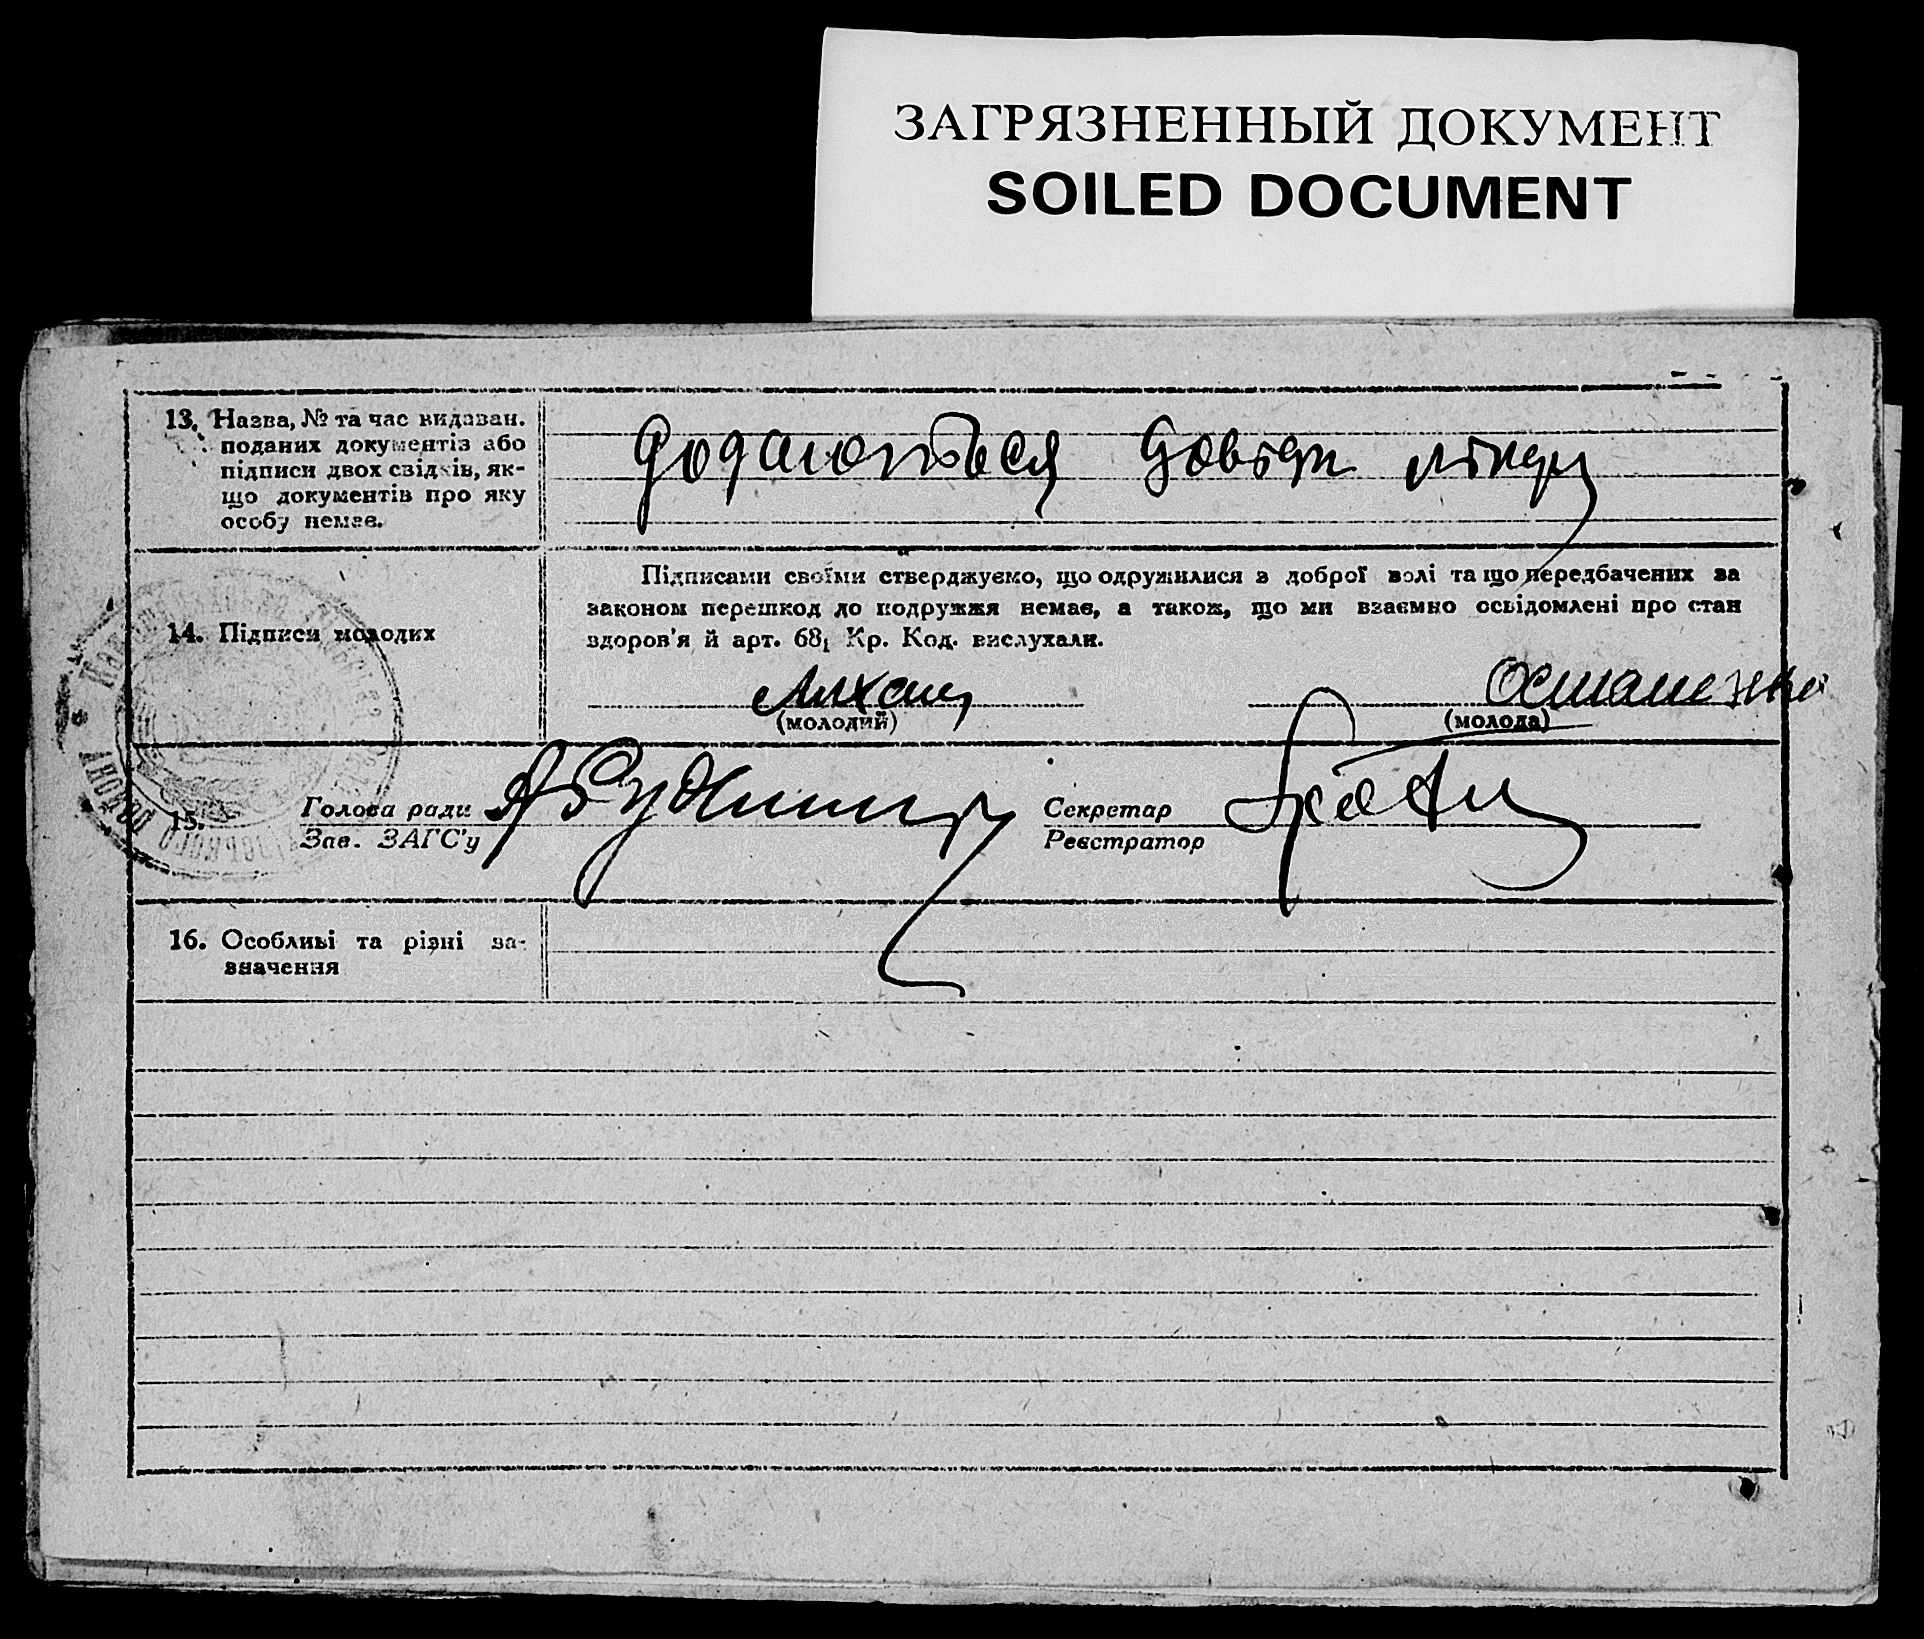 ЗАГРЯЗНЕННЫЙ ДОКУМЕНТ
SOILED DOCUMENT
13. Назва, № та час видаван.
поданих документів або
підписи двох свідків, як-
що документів про яку
особу немає.
Додаються довідки
14. Підписи молодих
Підписами своїми стверджуємо, що одружилися з доброї волі та що передбачених за
законом перешкод до подружжя немає, а також, що ми взаємно освідомлені про стан
здоров'я й арт. 68₁ Кр. Код. вислухали.
Осташенко
(молодий)
(молода)
15.
Голова ради
Зав. ЗАГС'у
Секретар
Реєстратор
16. Особливі та різні за-
значення